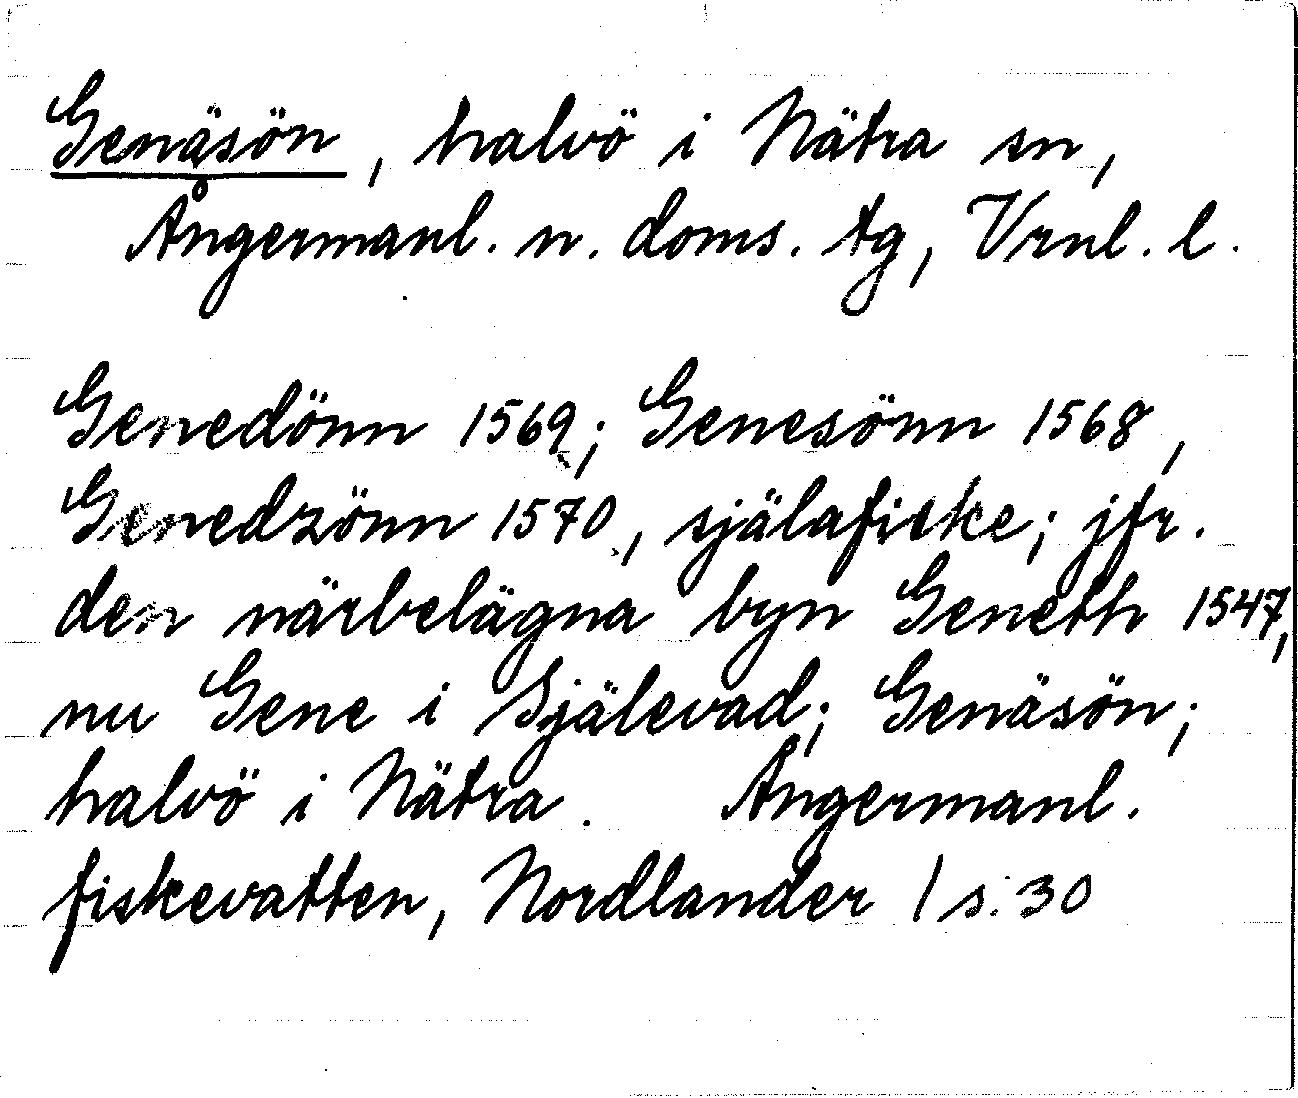 Genäsön, halvö i Nätra sn,
Ångermanl. n. doms. tg, Vrnl. l.
Genedönn 1569; Genesönn 1568,
Genedzönn 1570, själafiske; jfr.
den närbelägna byn Geneth 1547,
nu Gene i Själevad; Genäsön;
halvö i Nätra. Ångermanl.
fiskevatten, Nordlander 1 s. 30